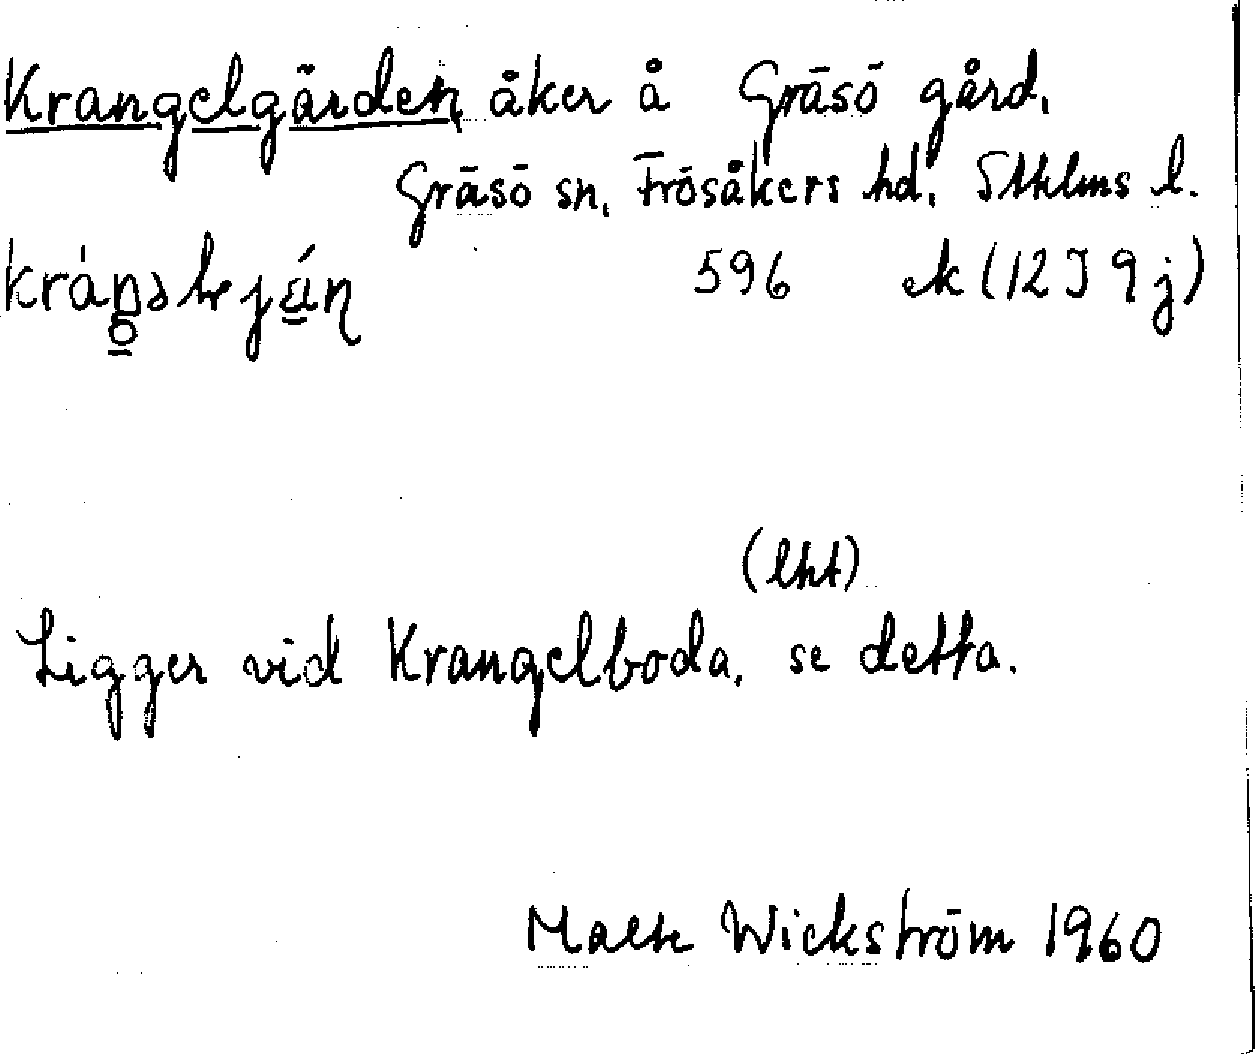 Krangelgärden, åker å Gräsö gård,
Gräsö sn, Frösåkers hd, Sthlms l.
596 ek (12 I 9 j)
(lht)
Ligger vid Krangelboda, se detta.
Malte Wickström 1960